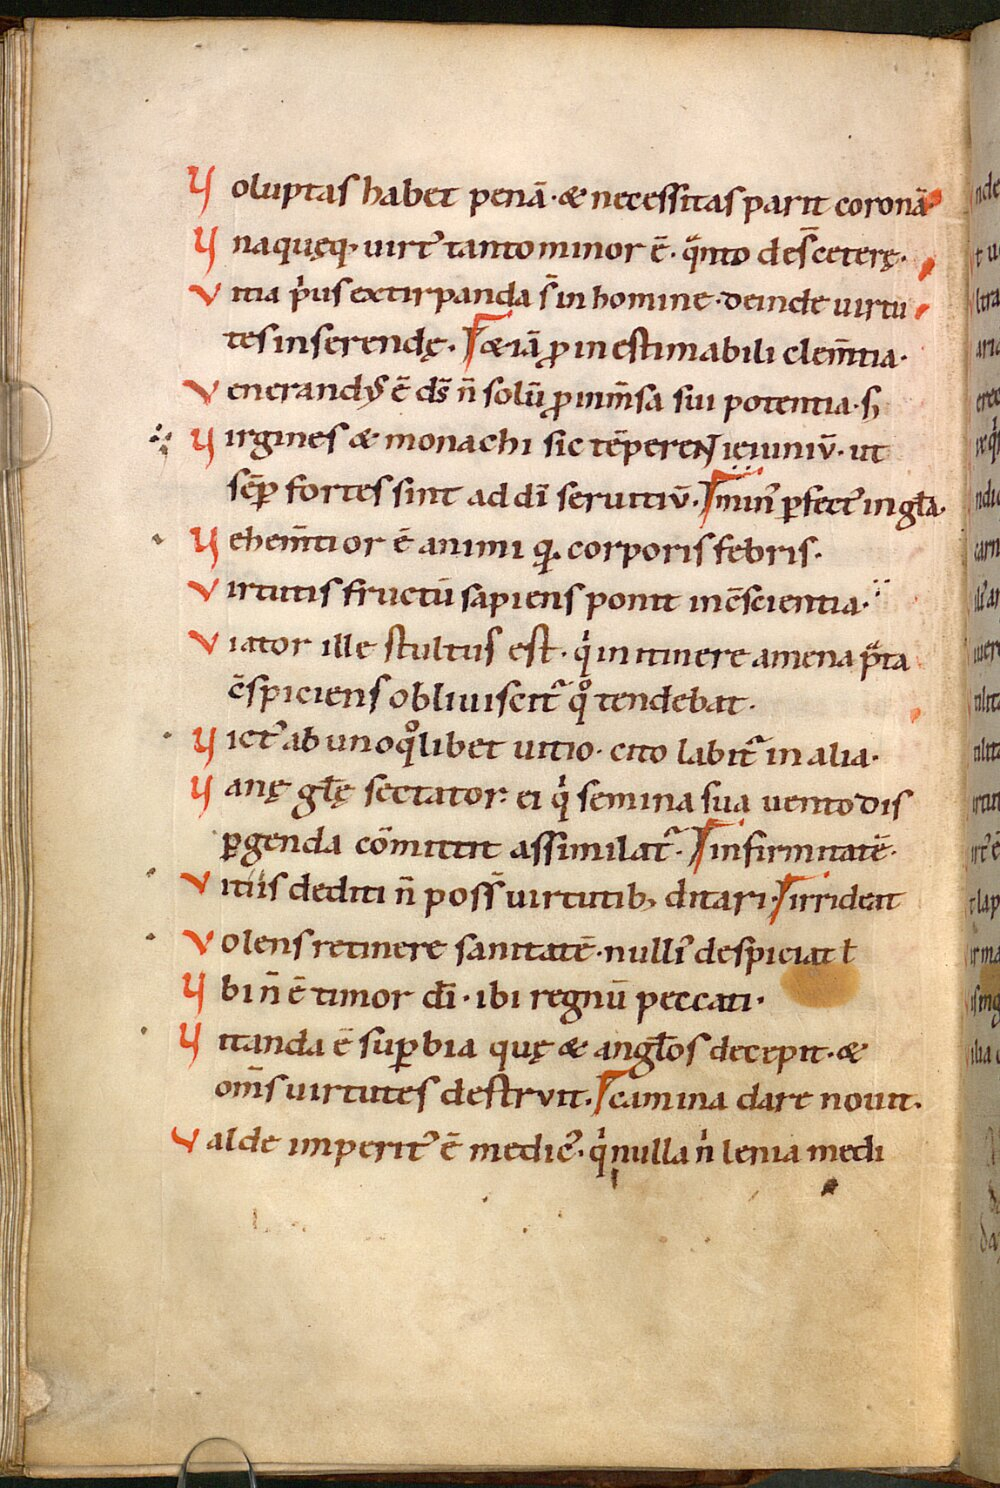 Voluptas habet penā· & necessitas parit coronā·
Vnaquęq; uirt᾽ tanto minor ē· qͣnto des̄ceterę·
Vitia p͛us extirpanda s̄ in homine· deinde uirtu
tes inserendę· & iā ꝓ inestimabili clem̄tia·
Venerand᾽ ē ds̄ n̄ solū ꝓ inm̄sa sui potentia· s;
Virgines & monachi sic tēperent ieiuniū· ut
sēꝑ fortes sint ad dī seruitiū· min᾽ ꝑfect᾽ in gła·
Vehem̄tior ē animi q̄· corporis febris·
Virtutis fructū sapiens ponit in c̄scientia·
Viator ille stultus est· qͥ in itinere amena pͣta
c̄spiciens obliuiscit᾽ qͦ tendebat·
Vict᾽ ab uno qͦlibet uitio· cito labit᾽ in alia·
Vanę głę sectator· ei qͥ semina sua uento dis
ꝑgenda cōmittit assimilat᾽· infirmitatē·
Vitiis dediti n̄ poss̄ uirtutib; ditari· irrideat
Volens retinere sanitatē· nulli᾽ despiciat ł
Vbi n̄ ē timor dī· ibi regnū peccati·
Vitanda ē suꝑbia quę & angłos decepit· &
om̄s uirtutes destruit· camina dare nouit·
Valde imperit᾽ ē medic᾽· qͥ nulla nͥ lenia medi